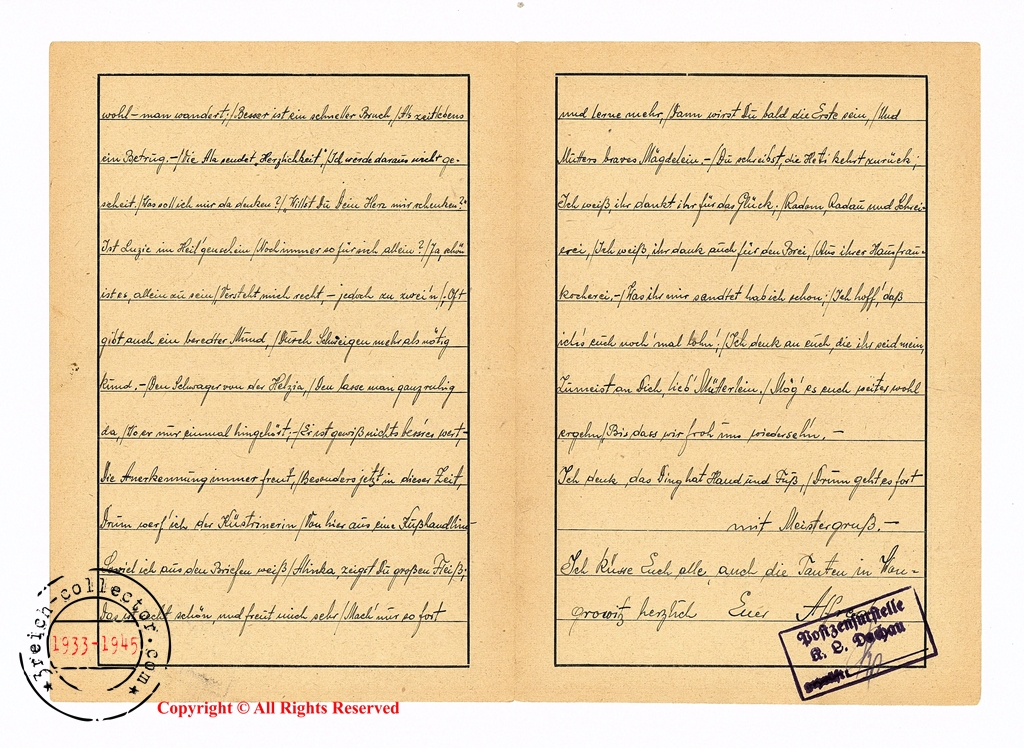 wohl – man wandert; / Besser ist ein schneller Bruch, / Als zeitlebens
ein Betrug. – / Die Ala sendet „Herzlichkeit“ / Ich werde daraus nicht ge-
scheit. / Was soll ich mir da denken? / „Willst Du Dein Herz mir schenken?“
Ist Luzie im Heil'genschein / Noch immer so für sich allein? / Ja, schön
ist es, allein zu sein / Versteht mich recht, – jedoch zu zwei'n /. Oft
gibt auch ein beredter Mund, / Durch Schweigen mehr als nötig
kund. – / Den Schwager von der Helzia, / Den lasse man ganz ruhig
da, / Wo er nur einmal hingehört; – / Er ist gewiß nichts bess'res wert. –
Die Anerkennung immer freut, / Besonders jetzt in dieser Zeit,
Drum werf' ich der Küstrinerin / Von hier aus eine Kußhand hin –
Soviel ich aus den Briefen weiß / Minka, zeigst Du großen Fleiß;
Das ist recht schön, und freut mich sehr / Mach' nur so fort
und lerne mehr, / Dann wirst Du bald die Erste sein, / Und
Mutters braves Mägdelein. – / Du schreibst, die Heti kehrt zurück;
Ich weiß, ihr dankt ihr für das Glück. / Radom, Radau und Schrei-
erei, / Ich weiß, ihr dank auch für den Brei, / Aus ihrer Hausfrau-
kocherei. – / Was ihr mir sandtet hab ich schon; / Ich hoff', daß
ich's euch noch 'mal lohn'; / Ich denk an euch, die ihr seid mein,
Zumeist an Dich, lieb' Mütterlein. / Mög' es euch weiter wohl
ergehn / Bis dass wir froh uns wiederseh'n. –
Ich denk, das Ding hat Hand und Fuß, / Drum geht es fort
mit Meistergruß. –
Ich küsse Euch alle, auch die Tanten in
herzlich Euer
Postzensurstelle
K. L. Dachau
geprüft
★ 3reich-collector.com ★
1933-1945
Copyright © All Rights Reserved